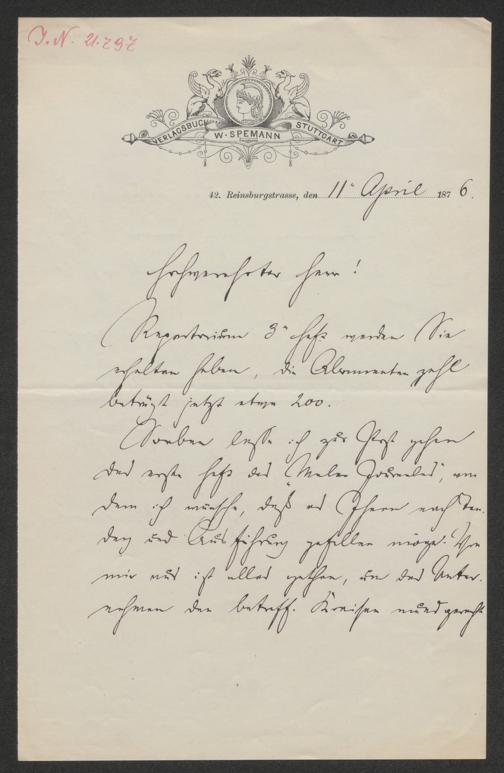 J. N. 21.797
VERLAGSBUCH STUTTGART
W. SPEMANN
42. Reinsburgstrasse, den 11t April 1876.
Hochverehrter Herr!
Repertorium 3s Heft werden Sie
erhalten haben, die Abonnentenzahl
beträgt jetzt etwa 200.
Soeben lasse ich zur Post gehen
das erste Heft des "Maler Journales", von
dem ich wünsche, daß es Ihnen nach Ten-
denz und Ausführung gefallen möge. Von
mir aus ist alles gethan, um das Unter-
nehmen den betreff. Kreisen mundgerecht